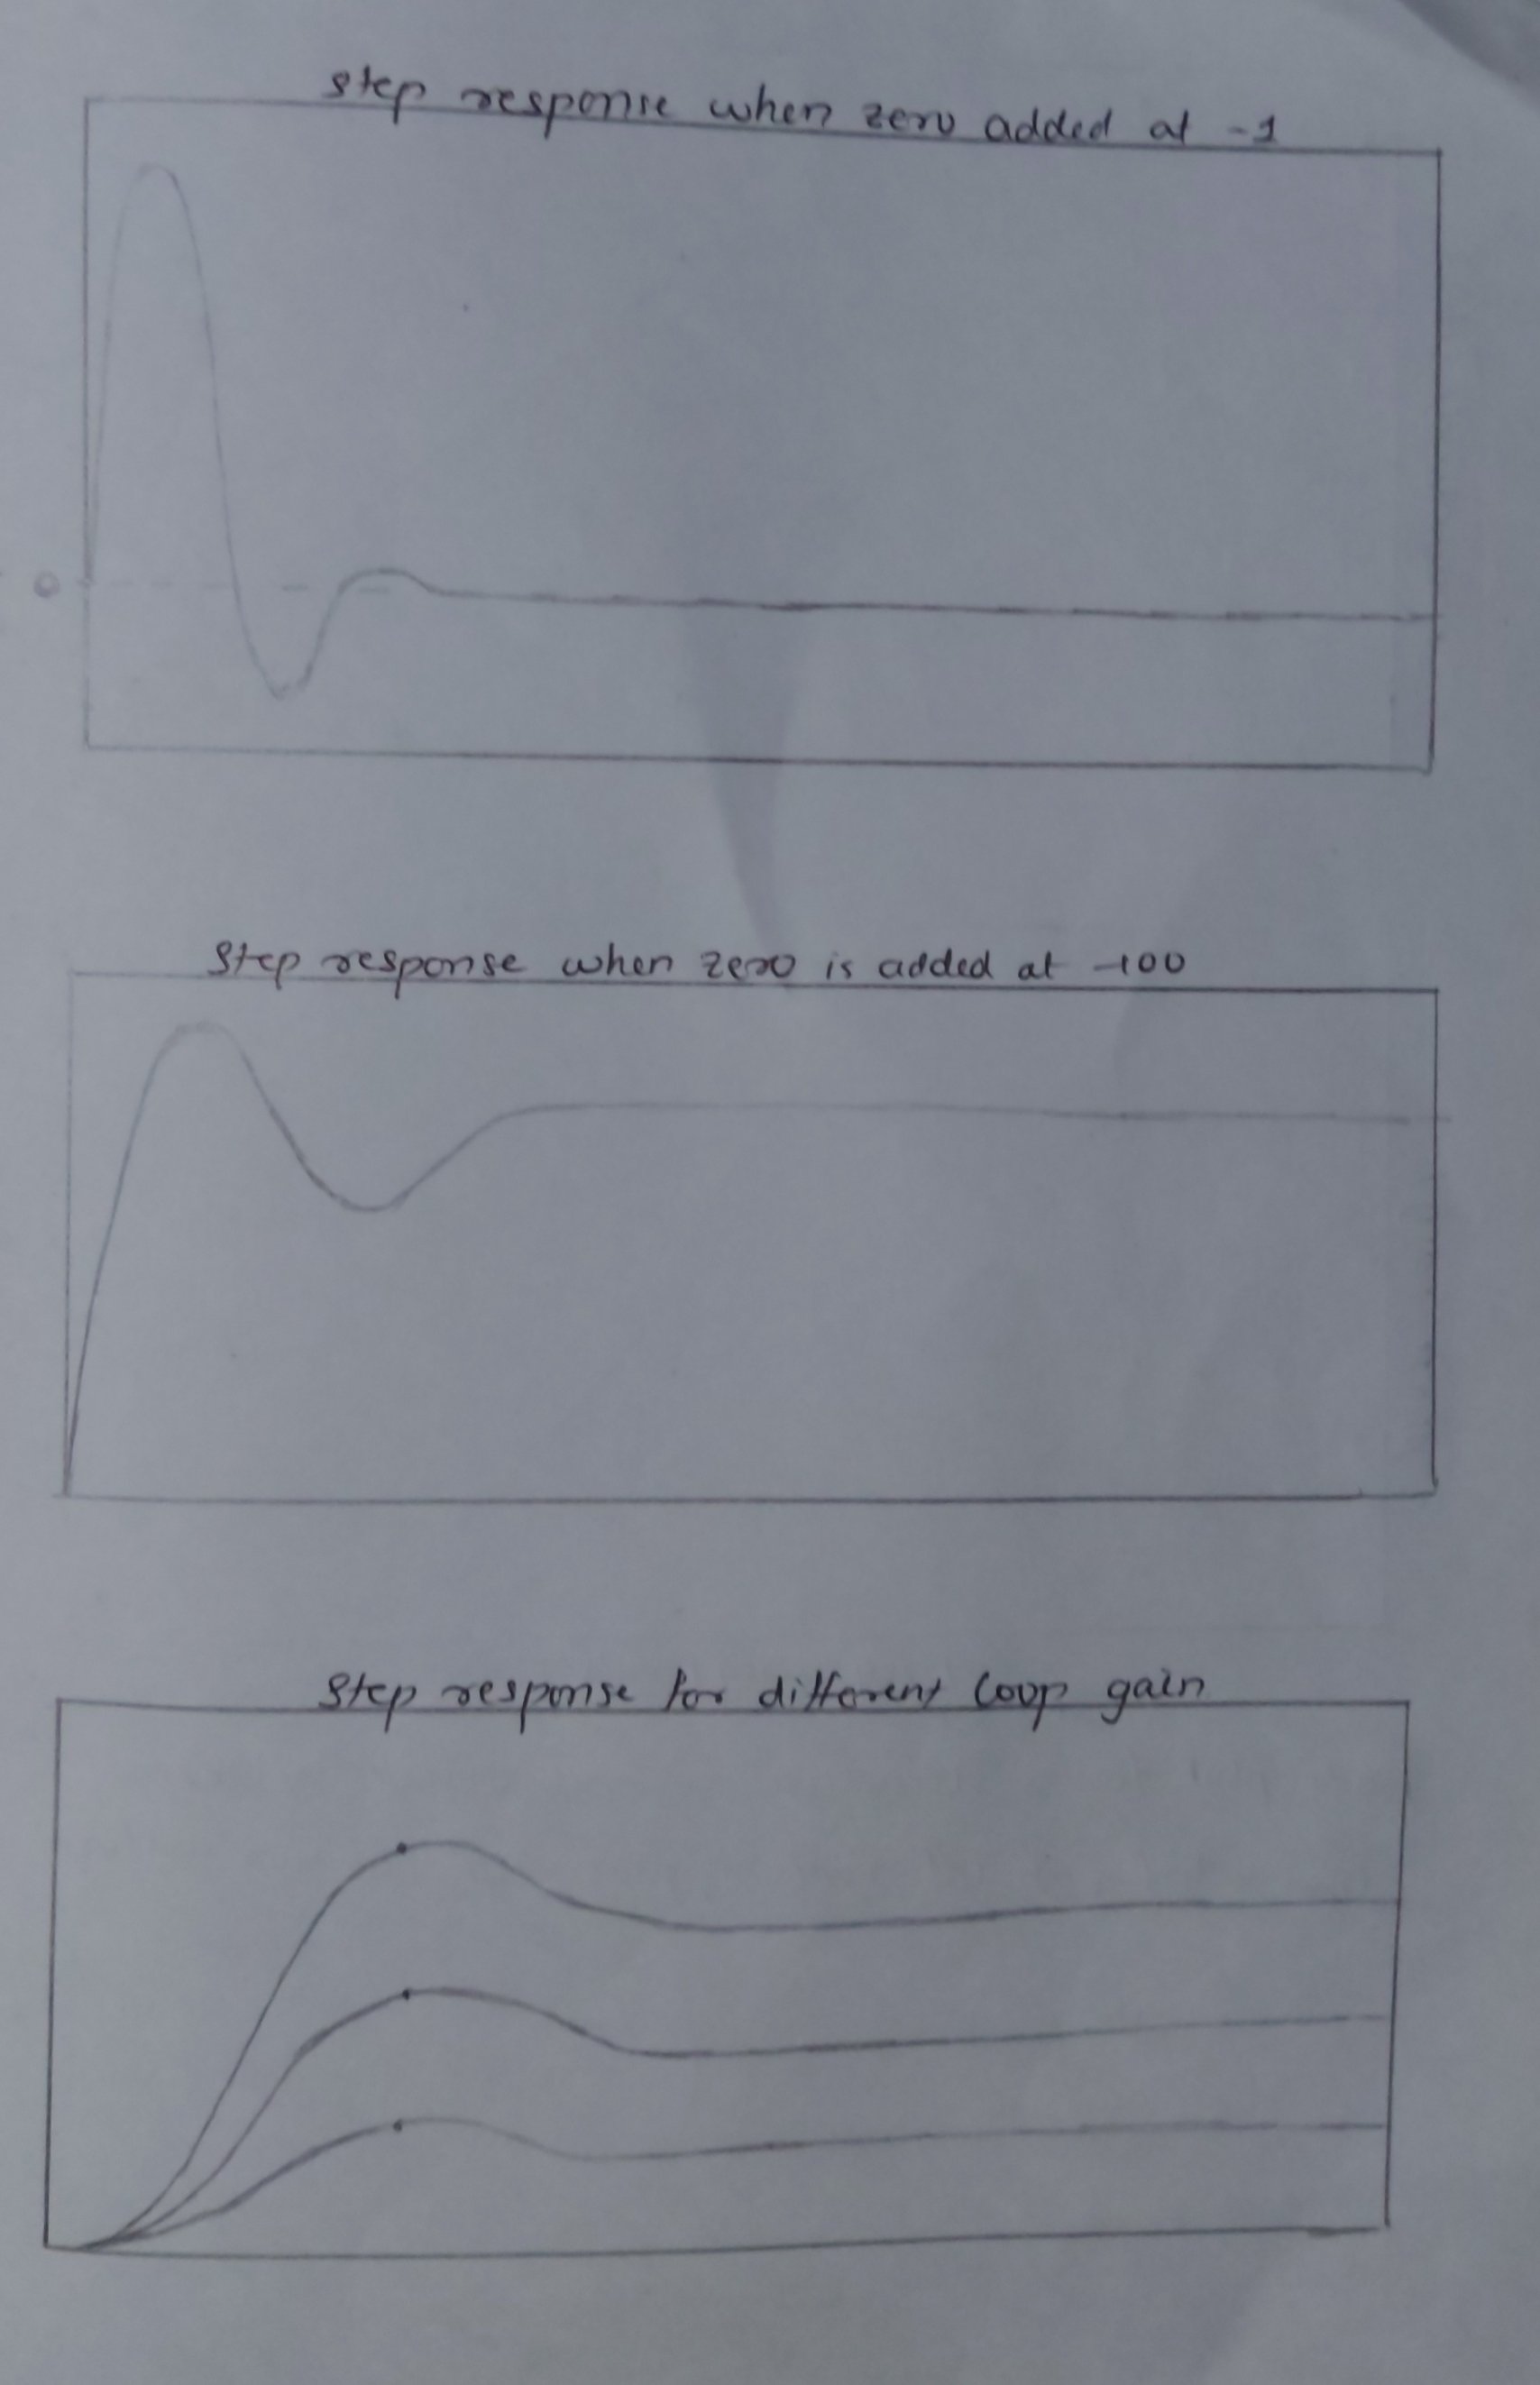 step response when zero added at -1
0
step response when zero is added at -100
step response for different loop gain